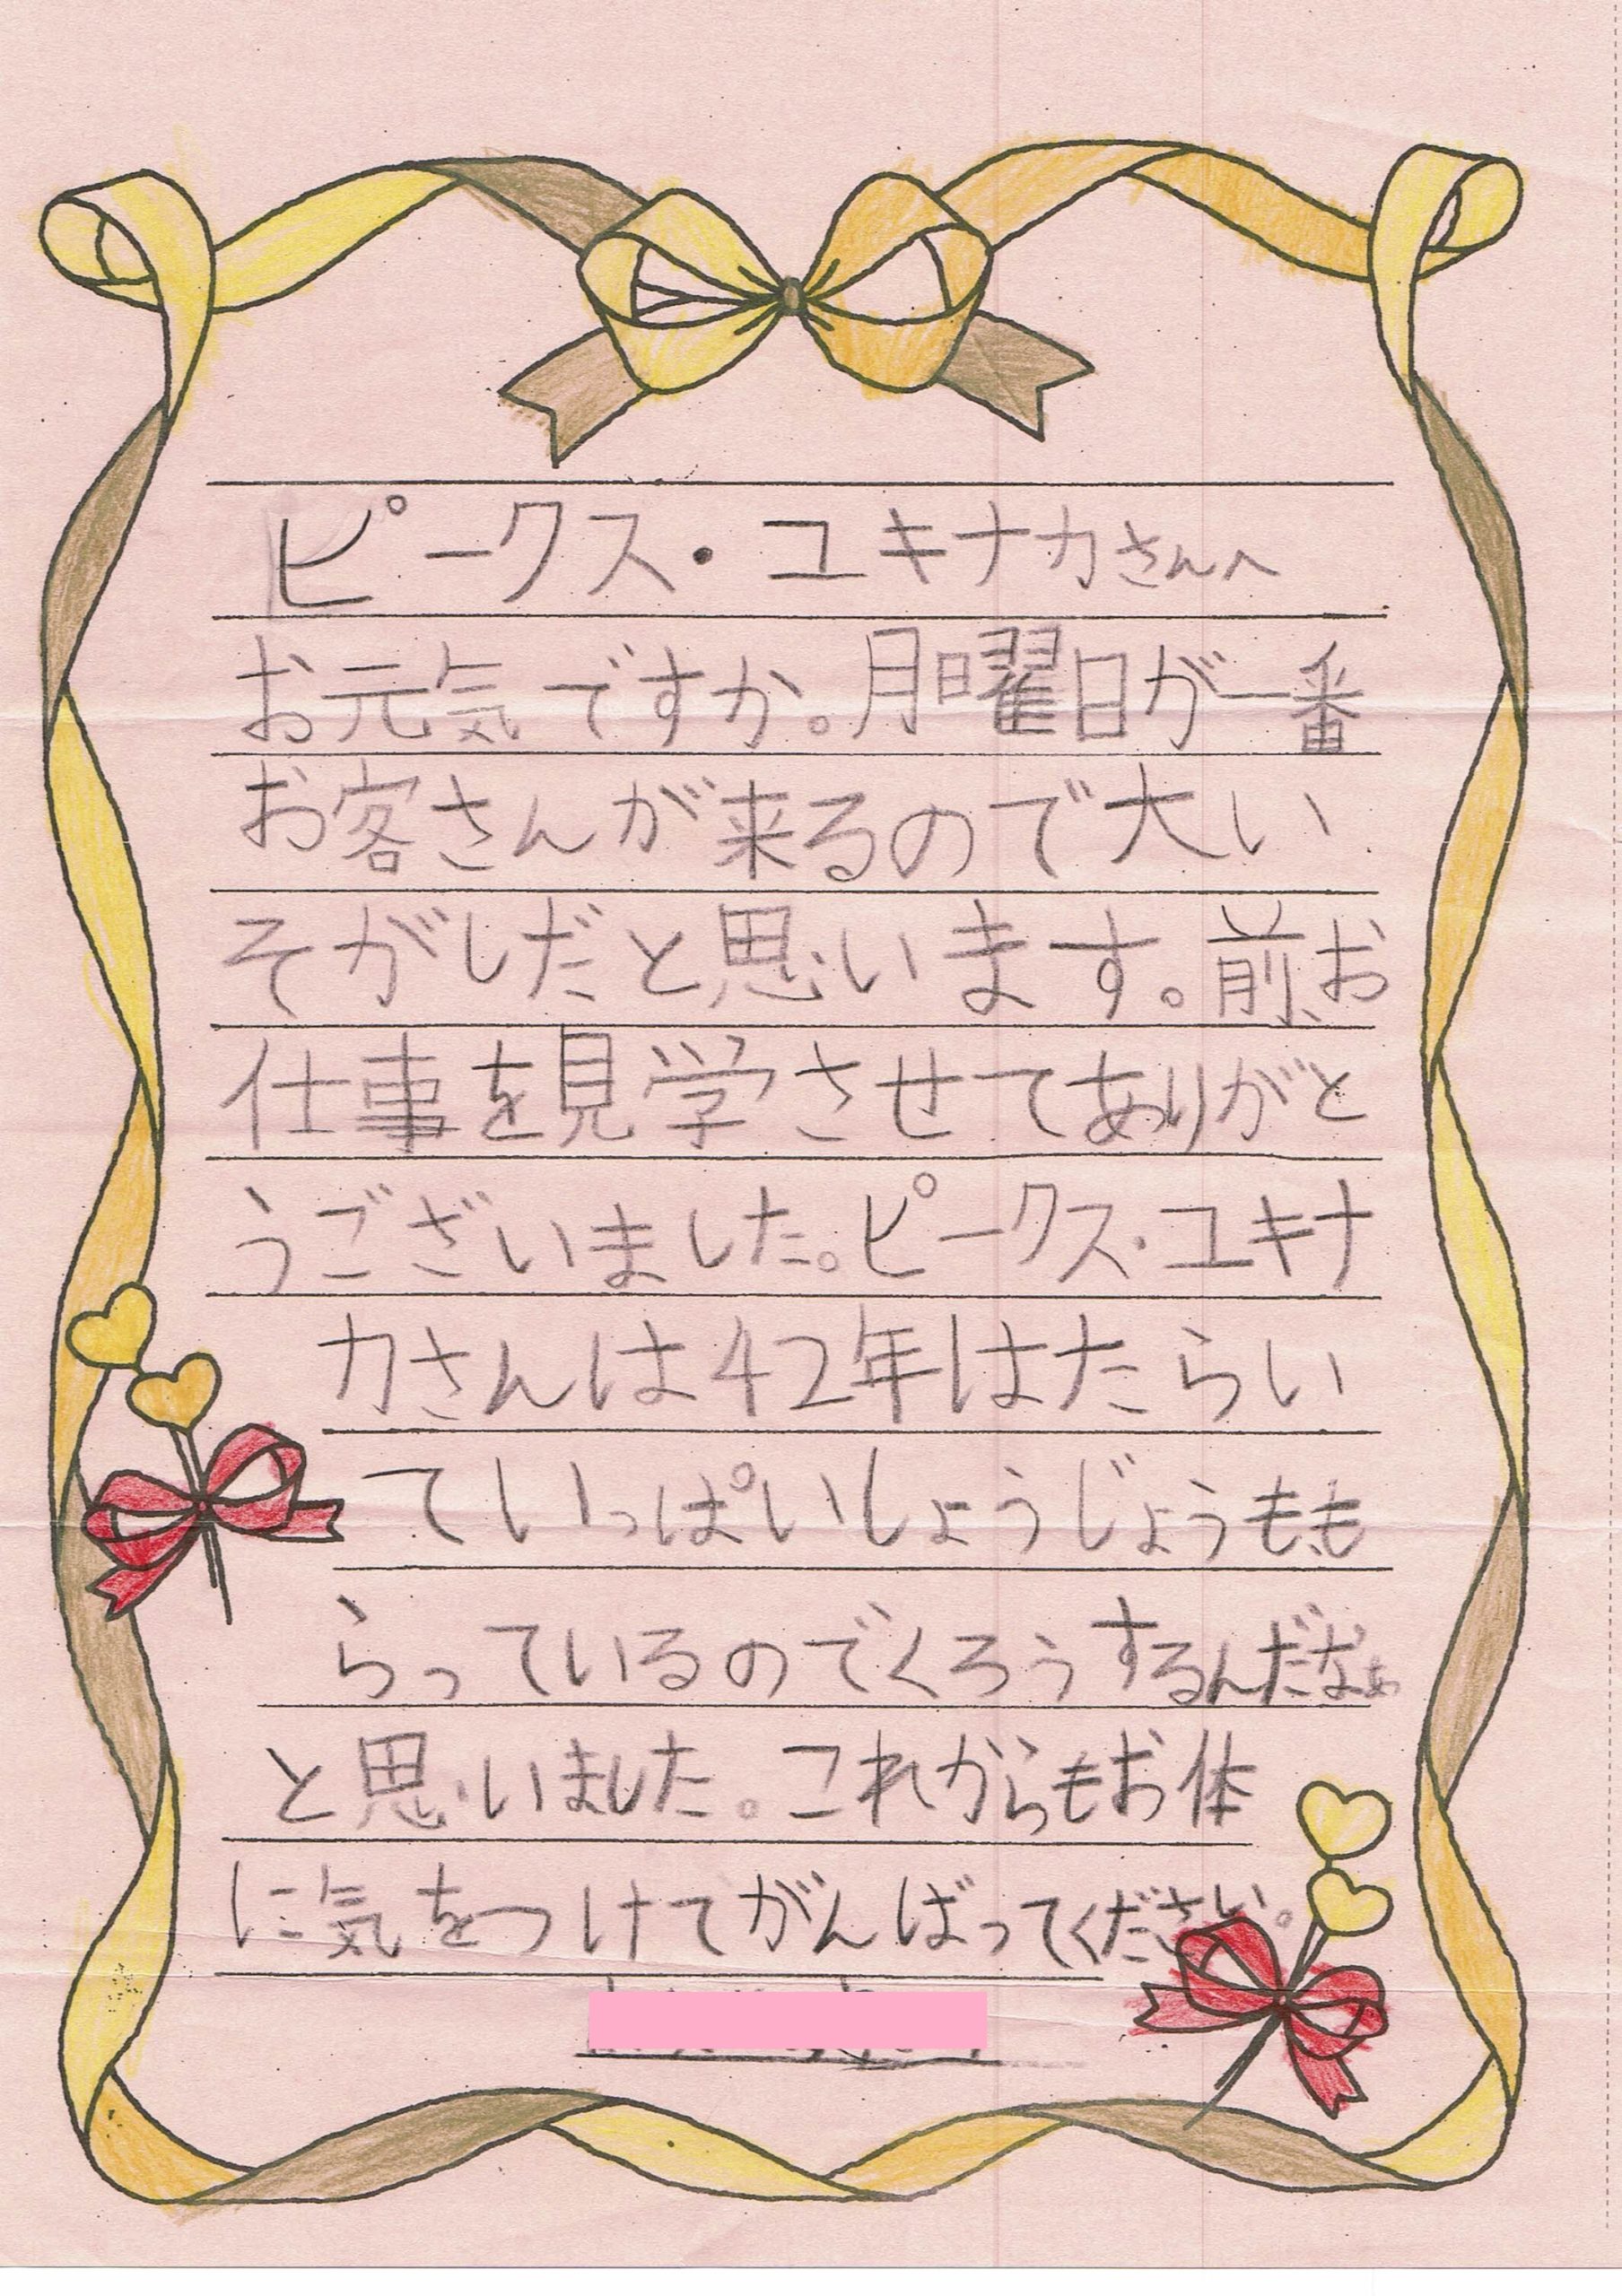 ピークス・ユキナカさんへ
お元気ですか。月曜日が一番
お客さんが来るので大い
そがしだと思います。前お
仕事を見学させてありがと
うございました。ピークス・ユキナ
カさんは42年はたらい
ていっぱいしょうじょうもも
らっているのでくろうするんだなぁ
と思いました。これからもお体
に気をつけてがんばってください。